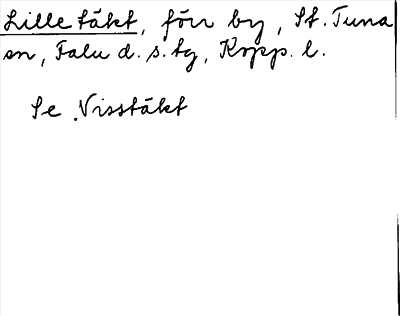 Lilletäkt, förr by, St. Tuna
sn, Falu d. s. tg, Kopp. l.
Se Visstäkt